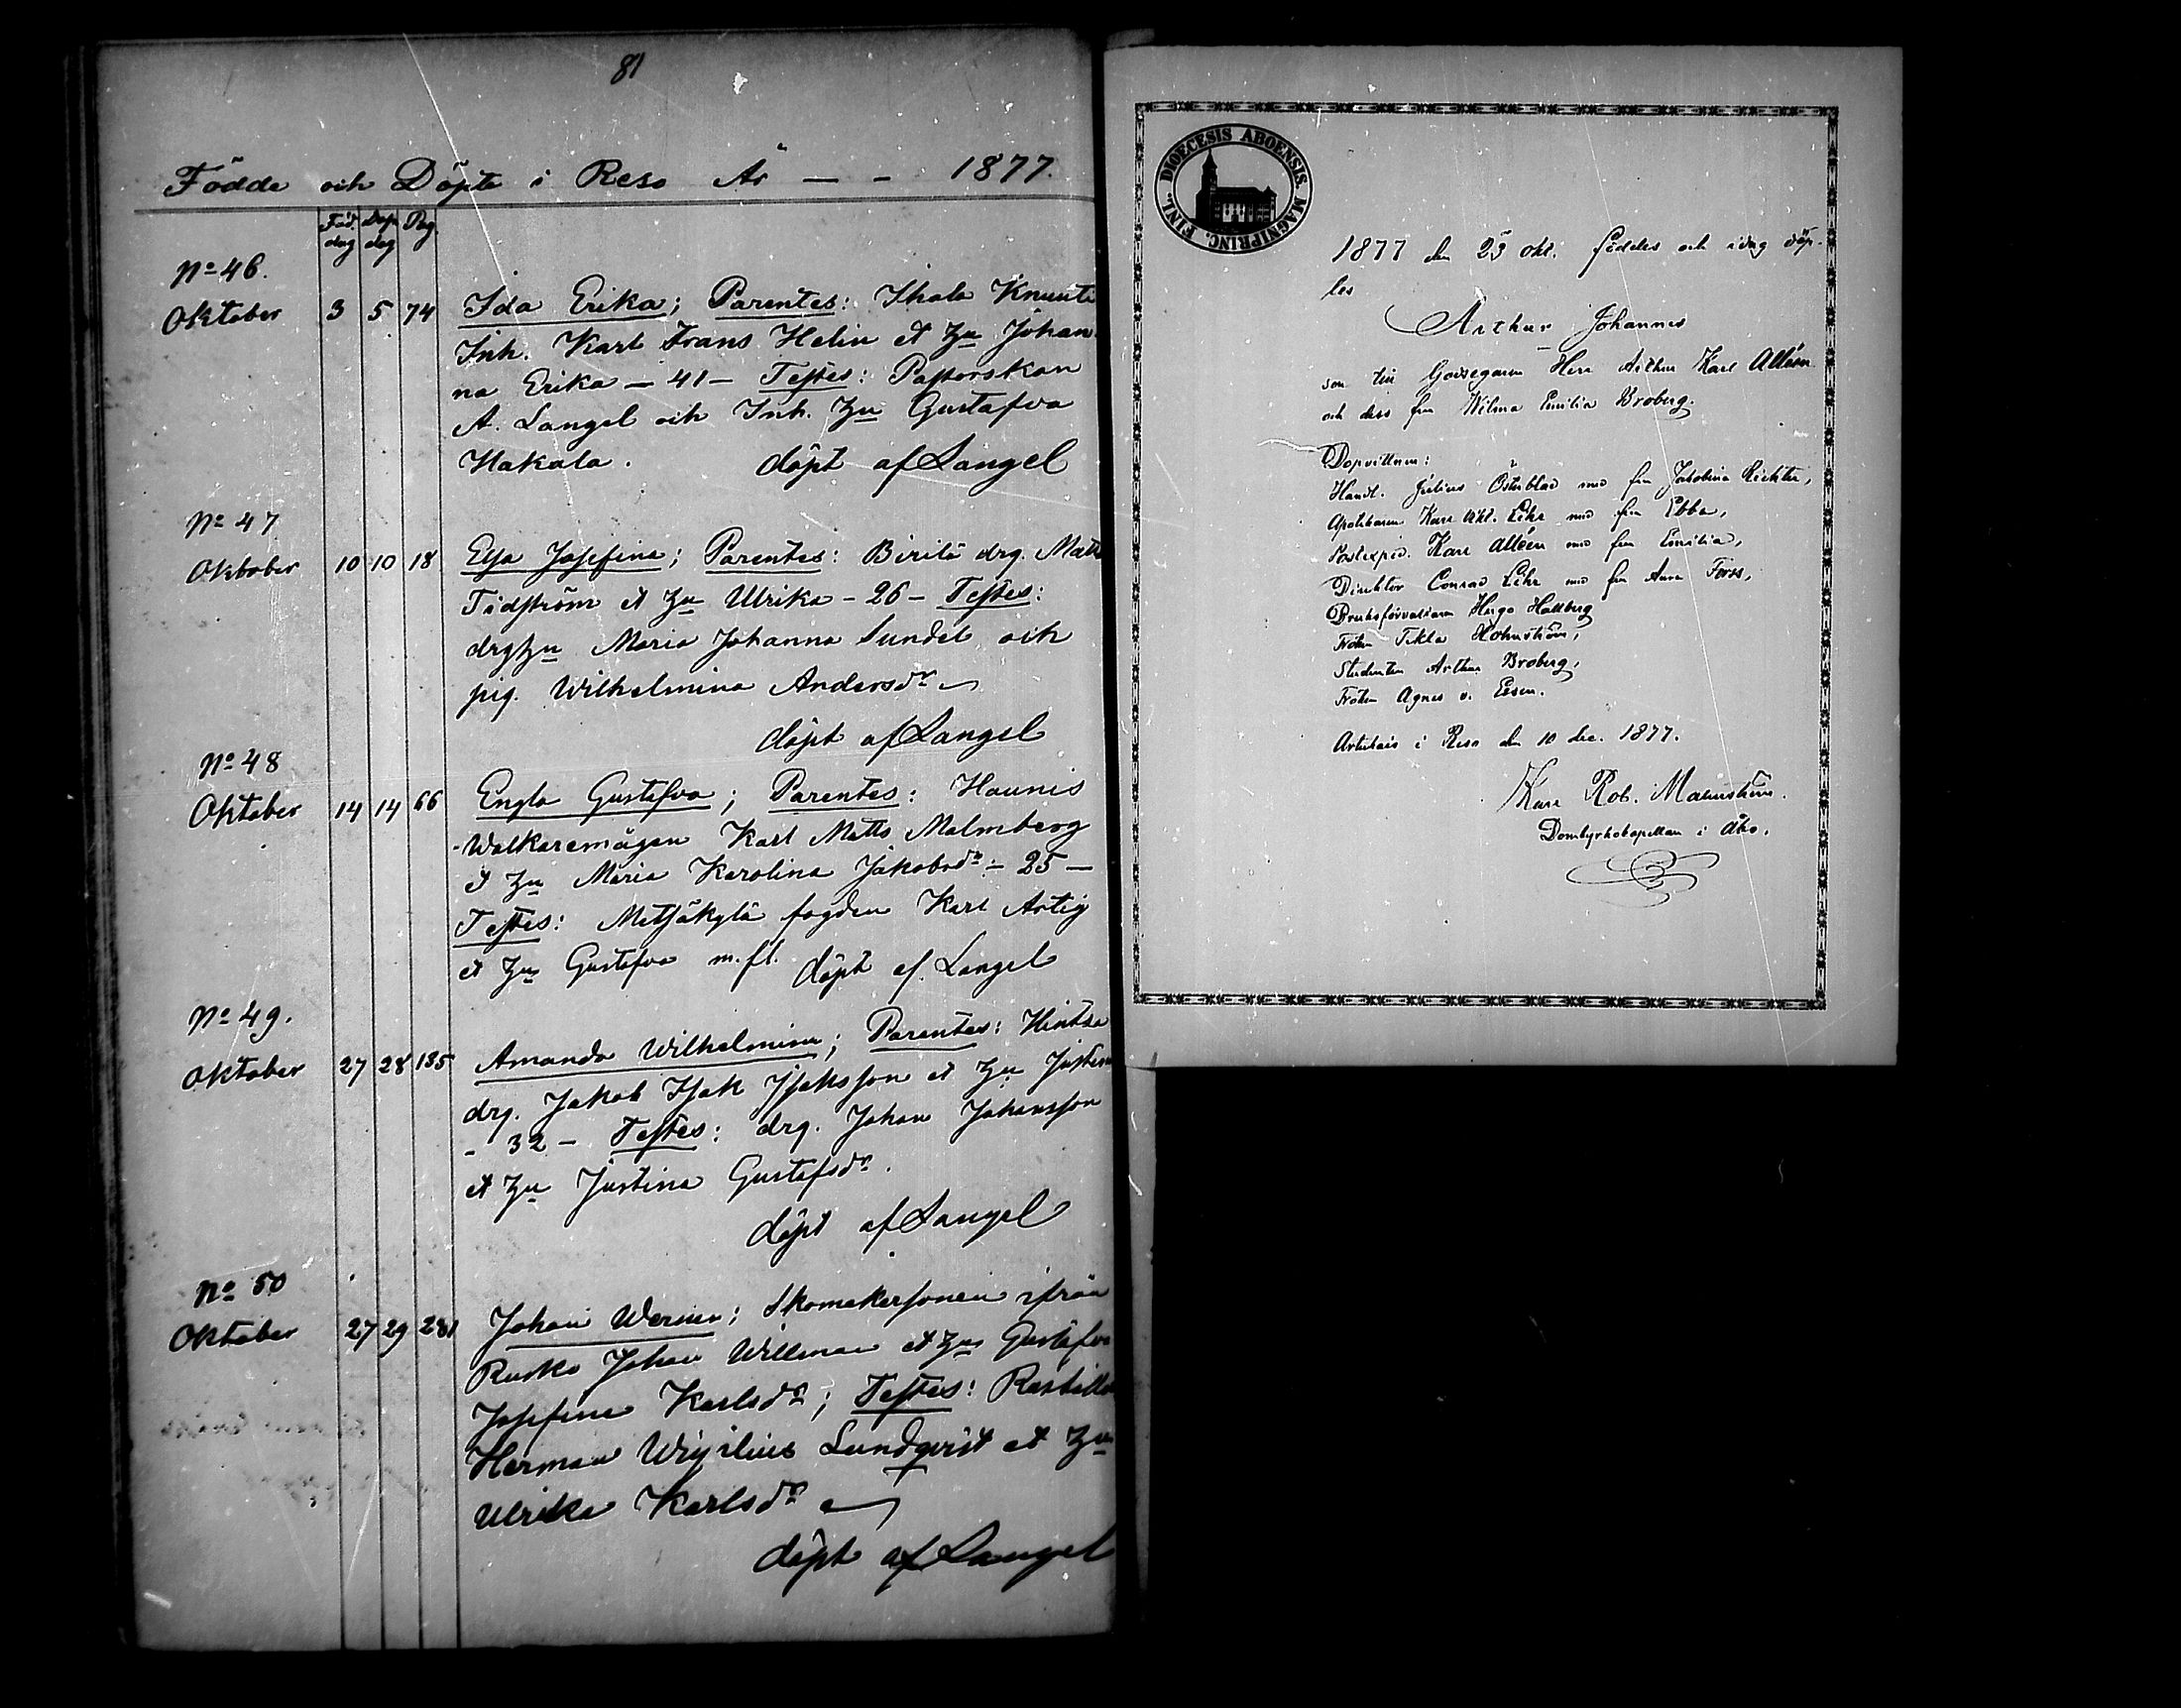 81
Födde och Döpte i Reso År — - 1877.
Föd. dag Döp dag Pag
No 46.
Oktober 3 5 74 Ida Erika; Parentes: Ihala Knuuti
Inh. Karl Frans Helin et Hu Johan
na Erika — 41 — Testes: Pastorskan
A. Langel och Inh. Hu Gustafva
Hakala. döpt af Langel
No 47
Oktober 10 10 18 Elsa Josefina; Parentes: Birilä drg. Matts
Tidström et Hu Ulrika - 26 - Testes:
drghu Maria Johanna Sundel och
pig. Wilhelmina Andersdr
döpt af Langel
No 48
Oktober 14 14 66 Engla Gustafva; Parentes: Haunis
Walkaremågen Karl Matts Malmberg
et Hu Maria Karolina Jakobsdr - 25 —
Testes: Metsäkylä fogden Karl Artig
et Hu Gustafva m.fl. döpt af Langel
No 49.
Oktober 27 28 135 Amanda Wilhelmina; Parentes: Hintsa
drg. Jakob Isak Isaksson et Hu Justina
- 32 - Testes: drg. Johan Johansson
et Hu Justina Gustafsdr.
döpt af Langel
No 50
Oktober 27 29 281 Johan Werner; Skomakersonen ifrån
Rusko Johan Willman et Hu Gustafva
Josefina Karlsdr; Testes:
Herman Wirsilius Lundqvist et Hu
Ulrika Karlsdr
döpt af Langel
DIOECESIS ABOENSIS. MAGNIPRINC. FINL.
1877 den 23 okt. föddes och idag döp-
tes
Arthur Johannes
son till Godsegaren Herr Arthur Karl Alléen
och dess fru Wilma Emilia Broberg.
Dopvittnen:
Handl. Julius Österblad med fru Jakobina Richter,
Apothekaren Karl Vikt. Lihr med fru Ebba,
Postexped. Karl Alléen med fru Emilia,
Direktör Conrad Lihr med fru Anna Forss,
Bruksförvaltaren Hugo Hallberg
Fröken Tekla Holmström,
Studenten Arthur Broberg,
Fröken Agnes v. Essen.
Artukais i Reso den 10 dec. 1877.
Karl Rob. Malmström.
Domkyrkokapellan i Åbo.